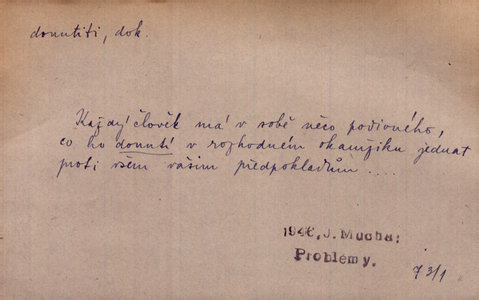 donutiti, dok.
Každý člověk má v sobě něco podivného,
co ho donutí v rozhodném okamžiku jednat
proti všem vašim předpokladům ....
1946, J. Mucha:
Problémy.
73/1